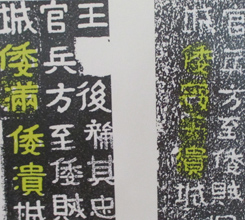 王 後 其忠
官兵方至倭賊
城倭滿倭潰城
官兵方至倭賊
城倭寇潰城